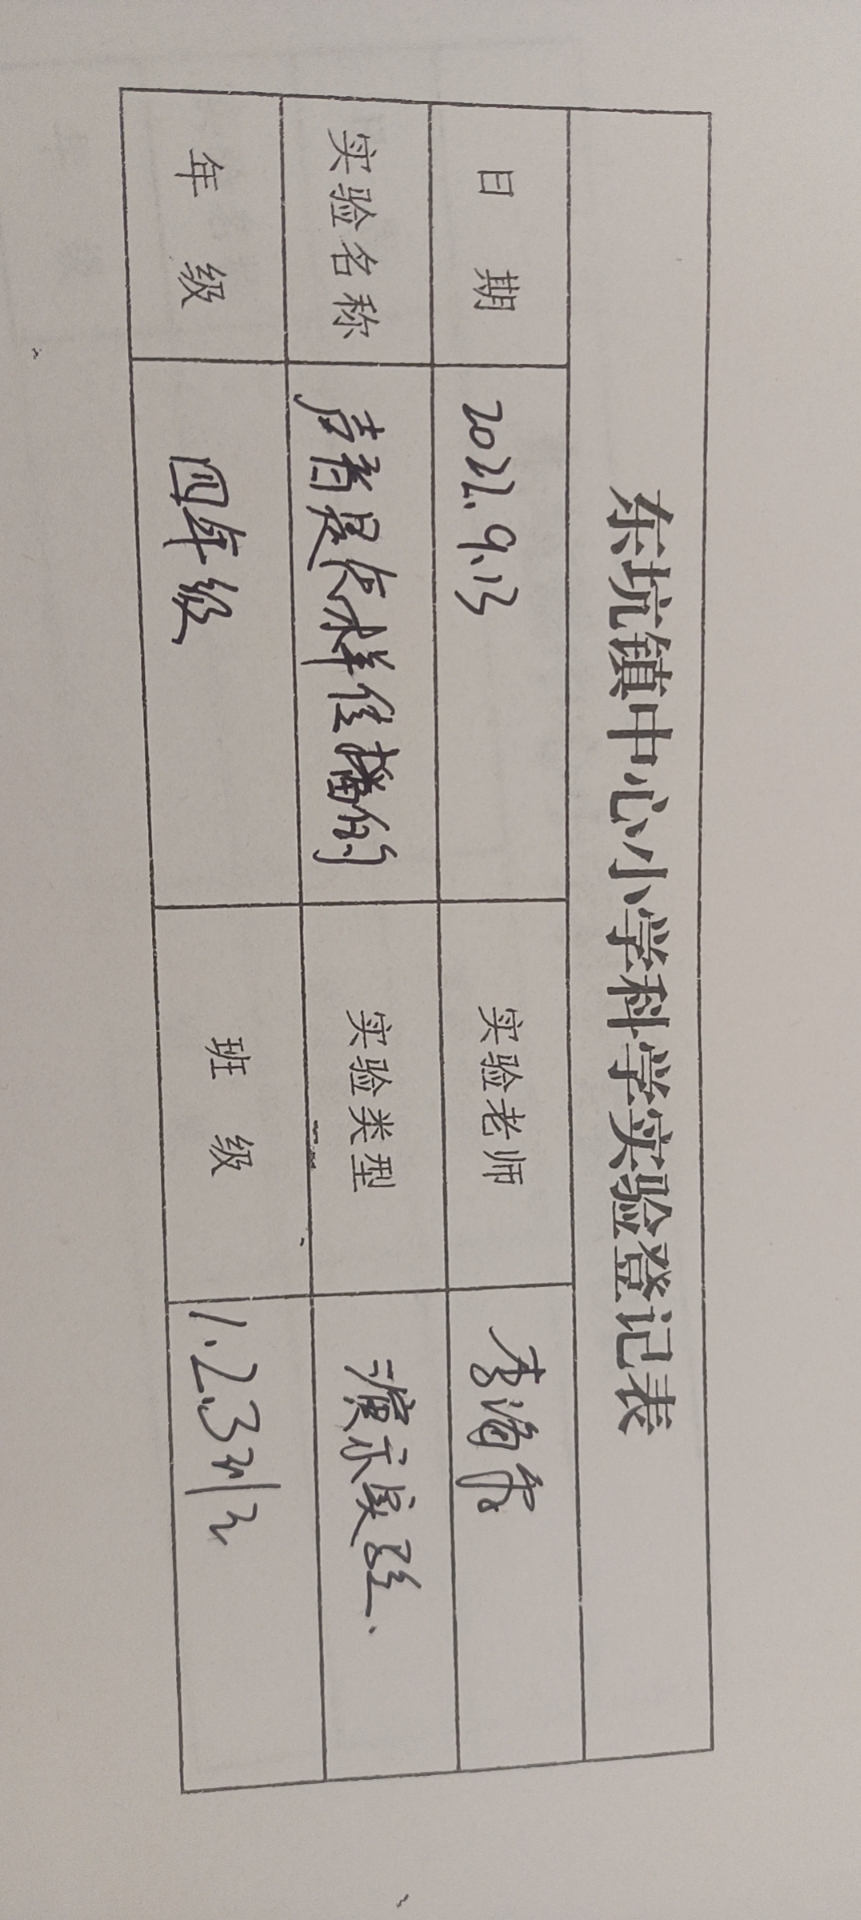 东坑镇中心小学科学实验登记表
日 期 2022.9.13 实验老师 李海
实验名称 声音是怎样传播的 实验类型 演示实验.
年 级 四年级 班 级 1.2.3班